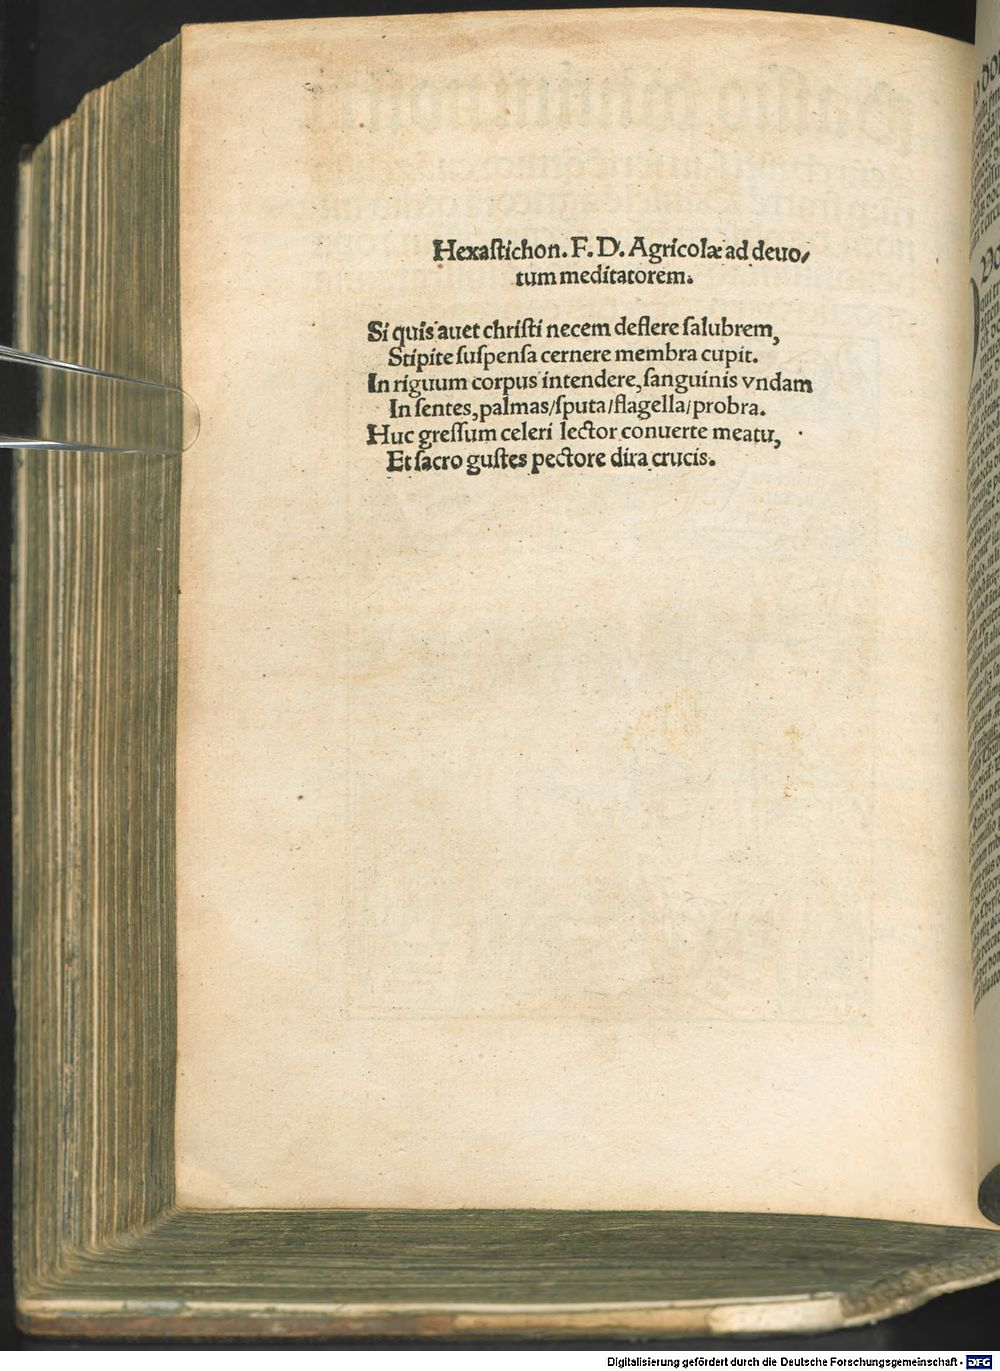 Hexaſtichon. F. D. Agricolæ ad deuo/
tum meditatorem.
Si quis auet chriſti necem deflere ſalubrem,
Stipite ſuſpenſa cernere membra cupit.
In riguum corpus intendere, ſanguinis vndam
In ſentes, palmas/ſputa/flagella/probra.
Huc greſſum celeri lector conuerte meatu,
Et ſacro guſtes pectore dira crucis.
Digitalisierung gefördert durch die Deutsche Forschungsgemeinschaft - DFG